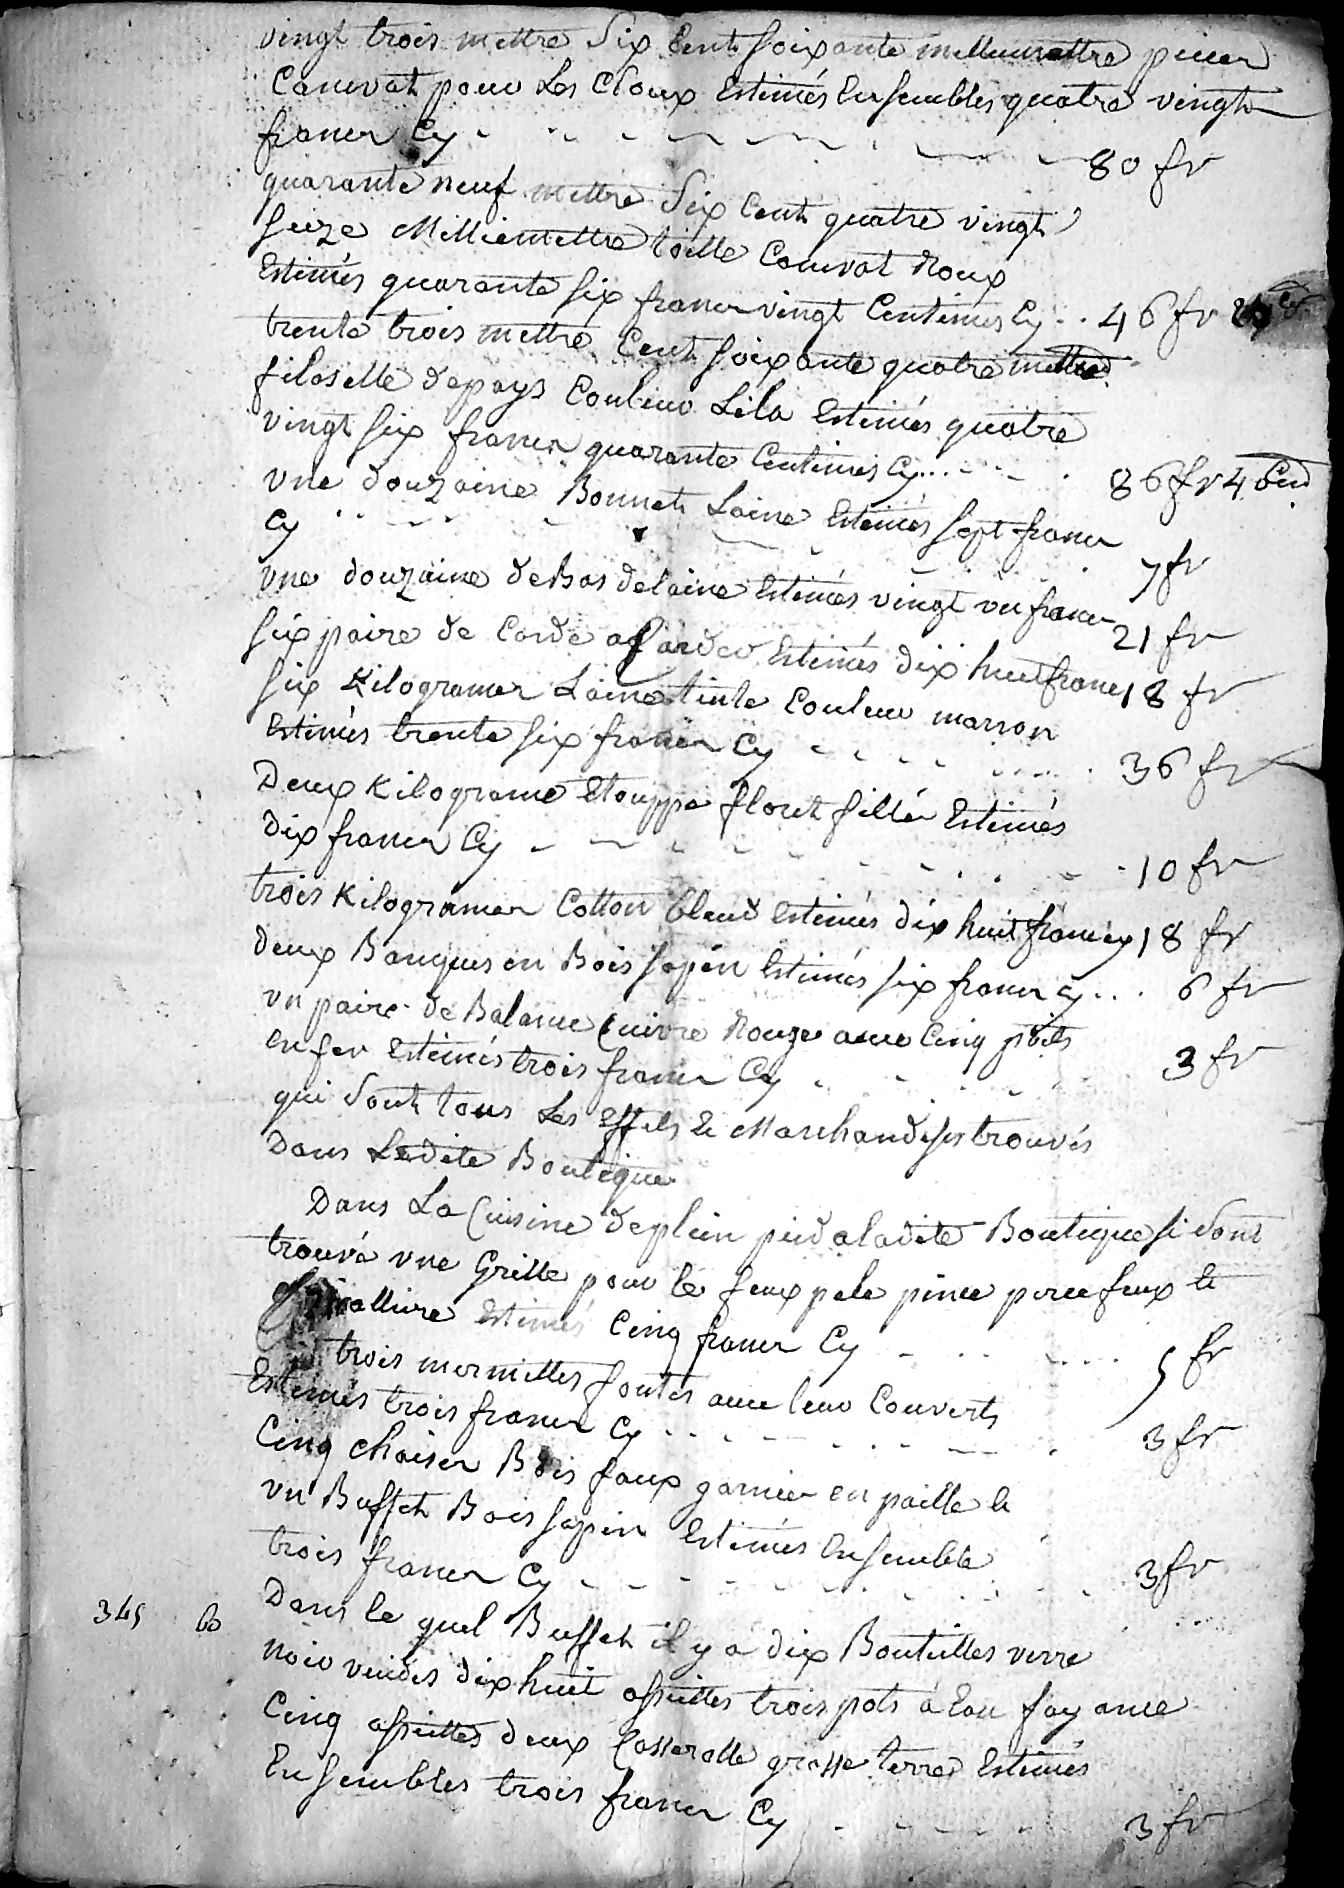 vingt trois mettre Six Cent Soixante millimettre
Canevat pour Les Cloux Estimés Ensembles quatre vingt
francs Cy 80 fr
quarante neuf mettre Six Cent quatre vingt
Seize Millimettre toille Canevat Roux
Estimés quarante Six francs vingt Centimes Cy 46 fr
trente trois mettre Cent Soixante quatre
filoselle depays Couleur Lila Estimés quatre
vingt Six francs quarante Centimes Cy 86 fr 4
une douzaine Bonnets Laine Estimés Sept francs
Cy 7 fr
une douzaine deBas delaine Estimés vingt un francs 21 fr
Six paire de Carde a Carder Estimés dix huit francs 18 fr
Six Kilogrames Laine tinte Couleur marron
Estimés trente Six francs Cy 36 fr
Deux Kilograme Etouppe floret fillée Estimés
Dix francs Cy 10 fr
trois Kilogrames Cotton bleud Estimés dix huit francs Cy 18 fr
deux Banques en Bois Sapin Estimés Six francs Cy 6 fr
un paire de Balance Cuivre Rouge avec Cinq poits
en fer Estimés trois francs Cy 3 fr
qui Sont tous Les Effets Et Marchandises trouvés
Dans Ladite Boutique
Dans La Cuisine deplein pied aladite Boutique Si Sont
trouvé une Grille pour le feux pele pince feux Et
Estimés Cinq francs Cy 5 fr
trois marmittes fontes avec leur Couverts
Estimés trois francs Cy 3 fr
Cinq chaises Bois faux garnies en paille Et
un Buffet Bois Sapin Estimés Ensemble
trois francs Cy 3 fr
345 60
Dans le quel Buffet il y a dix Bouteilles verre
noir vuides dix huit assiettes trois pots a Eau fayance
Cinq assiettes deux Casserolle grasse terre Estimés
Ensembles trois francs Cy 3 fr